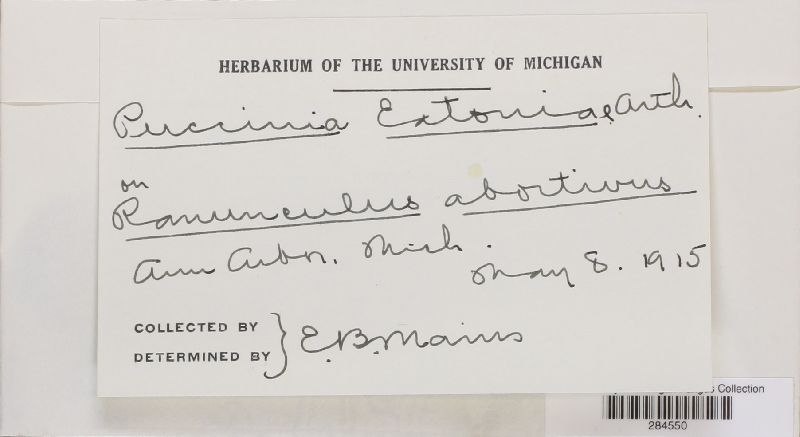 HERBARIUM OF THE UNIVERSITY OF MICHIGAN
Puccinia Eatoniae Arth.
on
Ranunculus abortivus
Ann Arbor. Mich.
May 8. 1915
COLLECTED BY
DETERMINED BY } E.B.Mains
Collection
284550